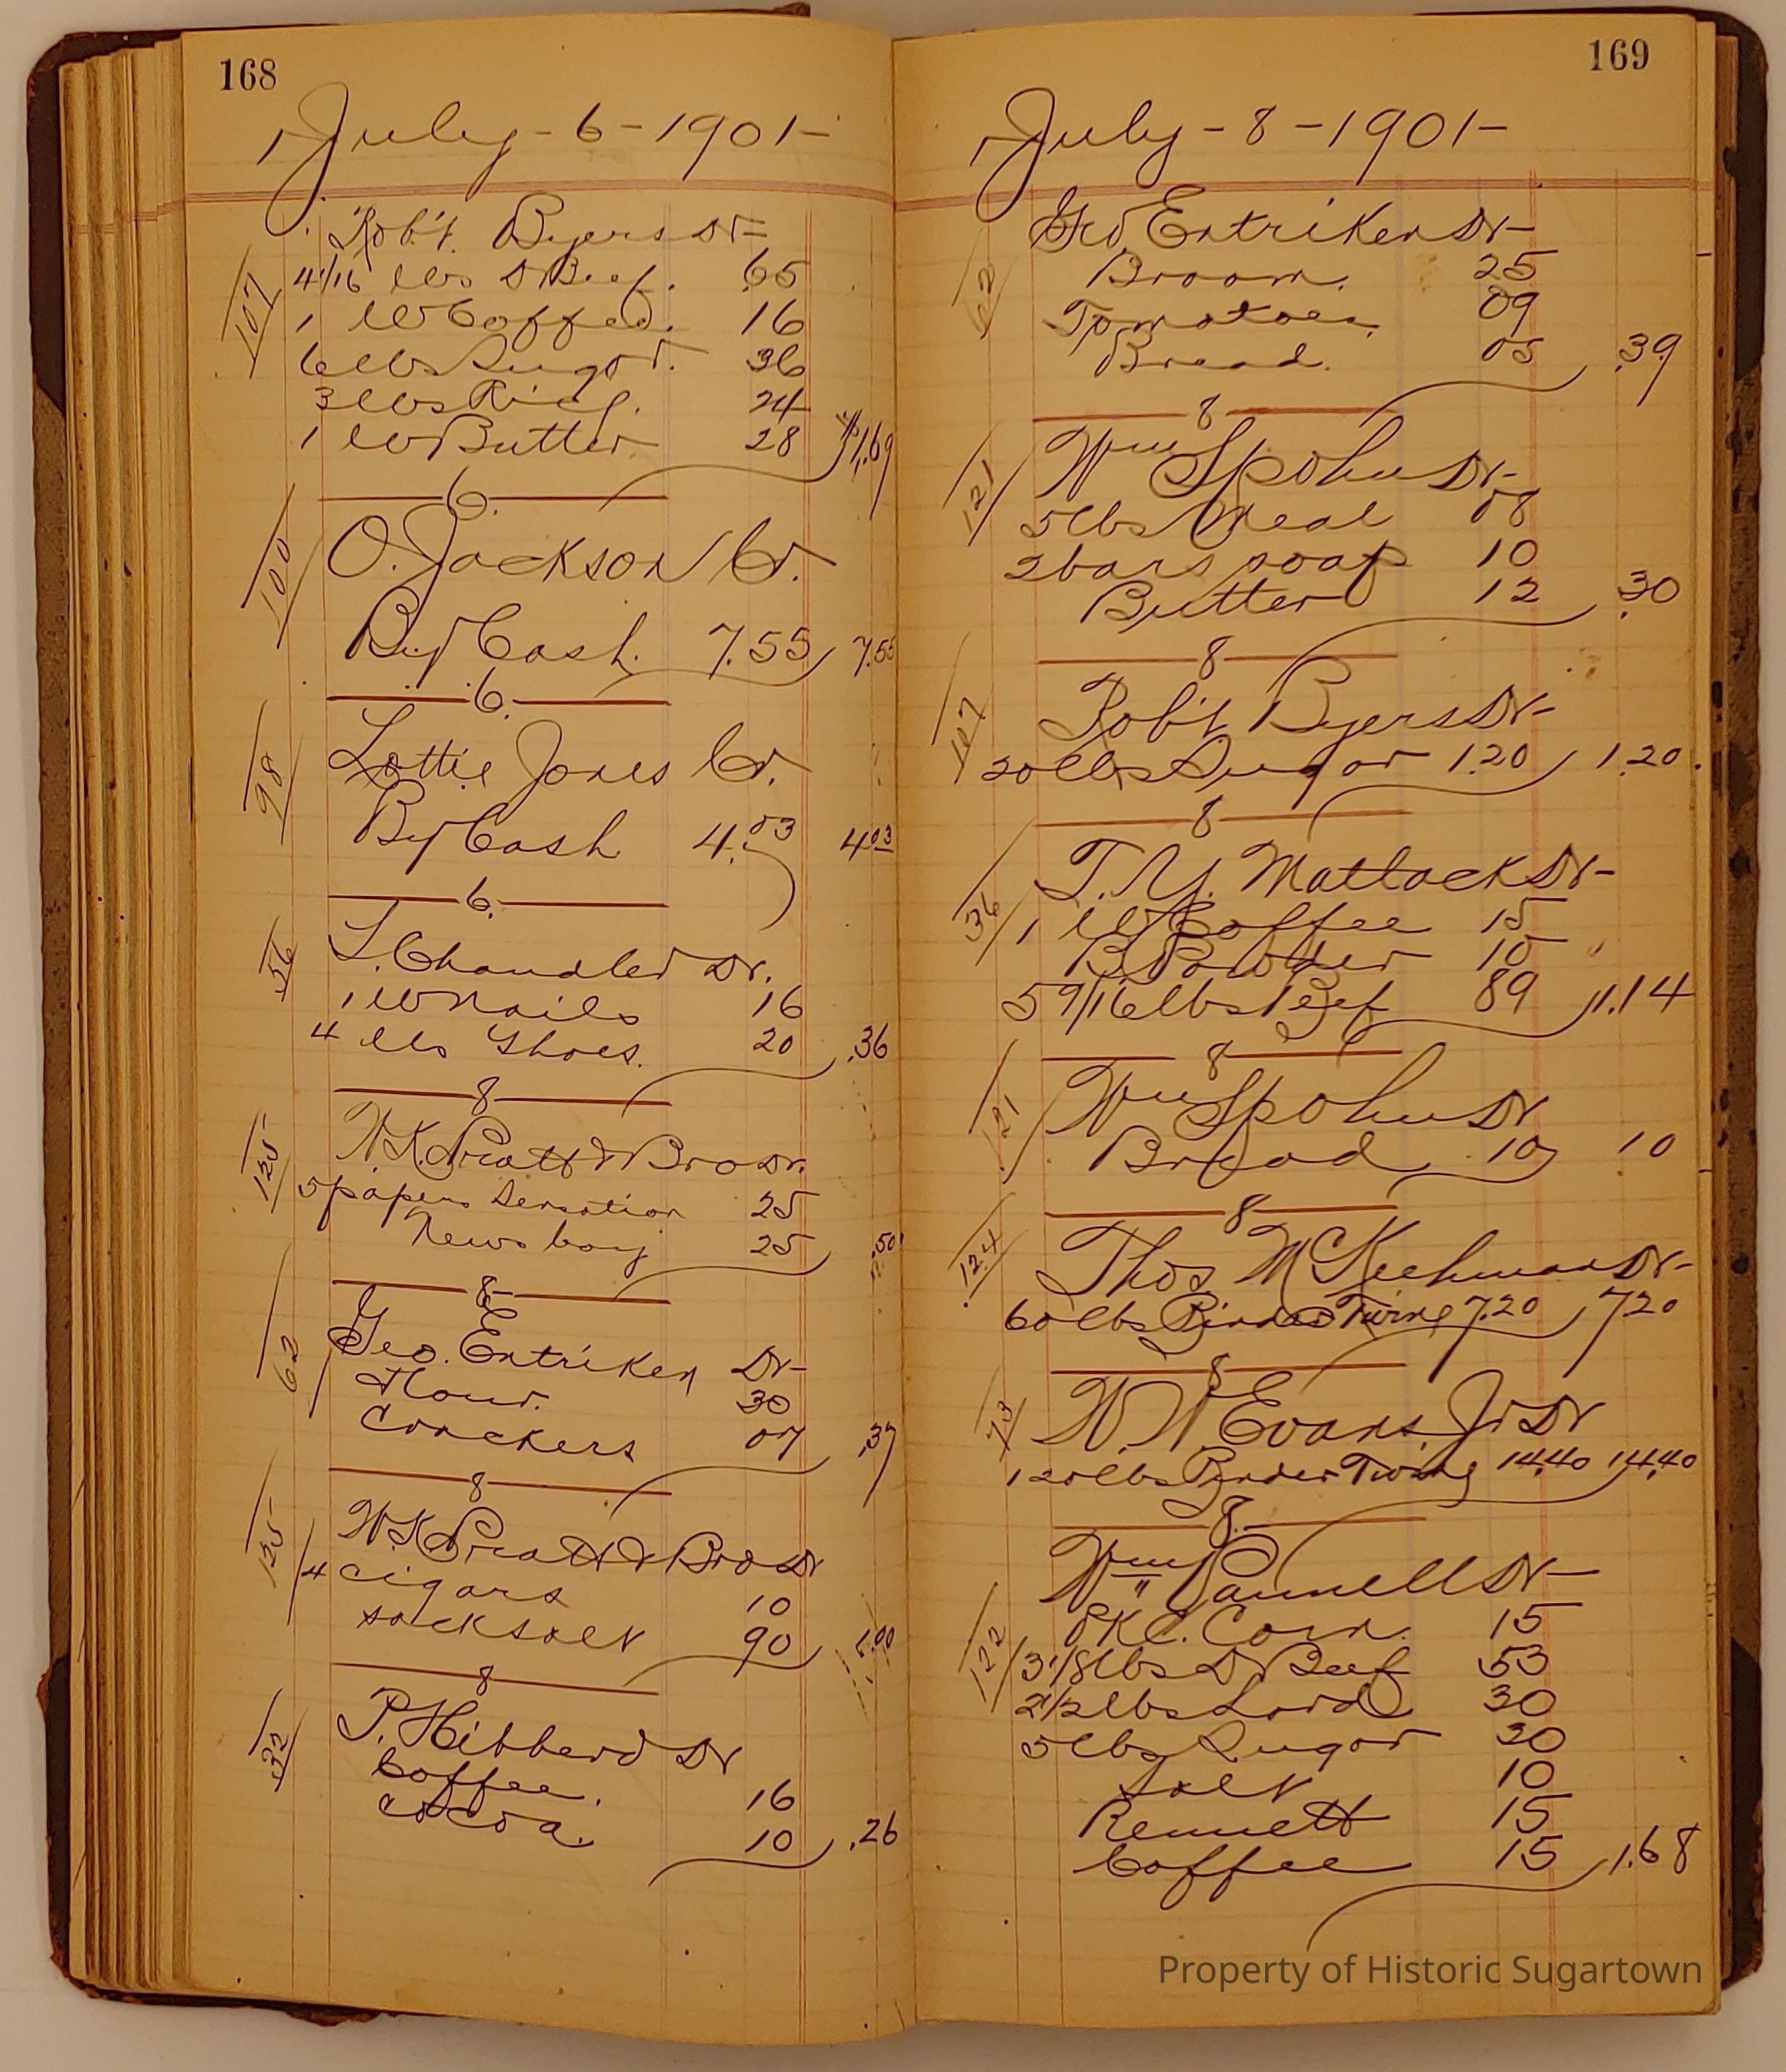 168
July-6-1901-
Rob't. Byers Dr-
107
4 1/16 lbs D Beef. 65
1 lb Coffee. 16
6 lbs Sugar. 36
3 lbs Rice. 24
1 lb Butter 28 $1.69
6.
100
O. Jackson Cr.
By Cash. 7.55 7.55
6.
98
Lottie Jones Cr.
By Cash 4.03 4.03
6.
56
L. Chandler Dr.
1 lb nails 16
4 lbs Shoes. 20 .36
8
125
W.K. Pratt & Bro Dr.
5 papers Sensation 25
Newsboy 25 .50
8-
62
Geo. Entriken Dr-
Flour. 30
Crackers 07 .37
8
125
W.K. Pratt & Bro Dr
4 cigars 10
sack salt 90 1.00
8
32
P. Hibberd Dr
Coffee. 16
Cocoa. 10 .26
169
July-8-1901-
Geo Entriken Dr-
62
Broom. 25
Tomatoes. 09
Bread. 05 .39
8
121
Wm Spohn Dr-
5 lbs Meal 08
2 bars soap 10
Butter 12 .30
8
107
Rob't Byers Dr-
20 lbs Sugar 1.20 1.20.
8
36
T. Y. Matlack Dr-
1 lb Coffee 15
B Powder 10
5 9/16 lbs Beef 89 1.14
8
121
Wm Spohn Dr
Bread 10 10
8
124
Thos McKeehman Dr-
60 lbs Binder Twine 7.20 7.20
8
73
W. W. Evans. Jr Dr
120 lbs Binder Twine 14.40 14.40
8.
Wm Pannell Dr-
122
PK C. Corn. 15
3 1/8 lbs D Beef 53
2 1/2 lbs Lard 30
5 lbs Sugar 30
Salt 10
Rennett 15
Coffee 15 1.68
Property of Historic Sugartown